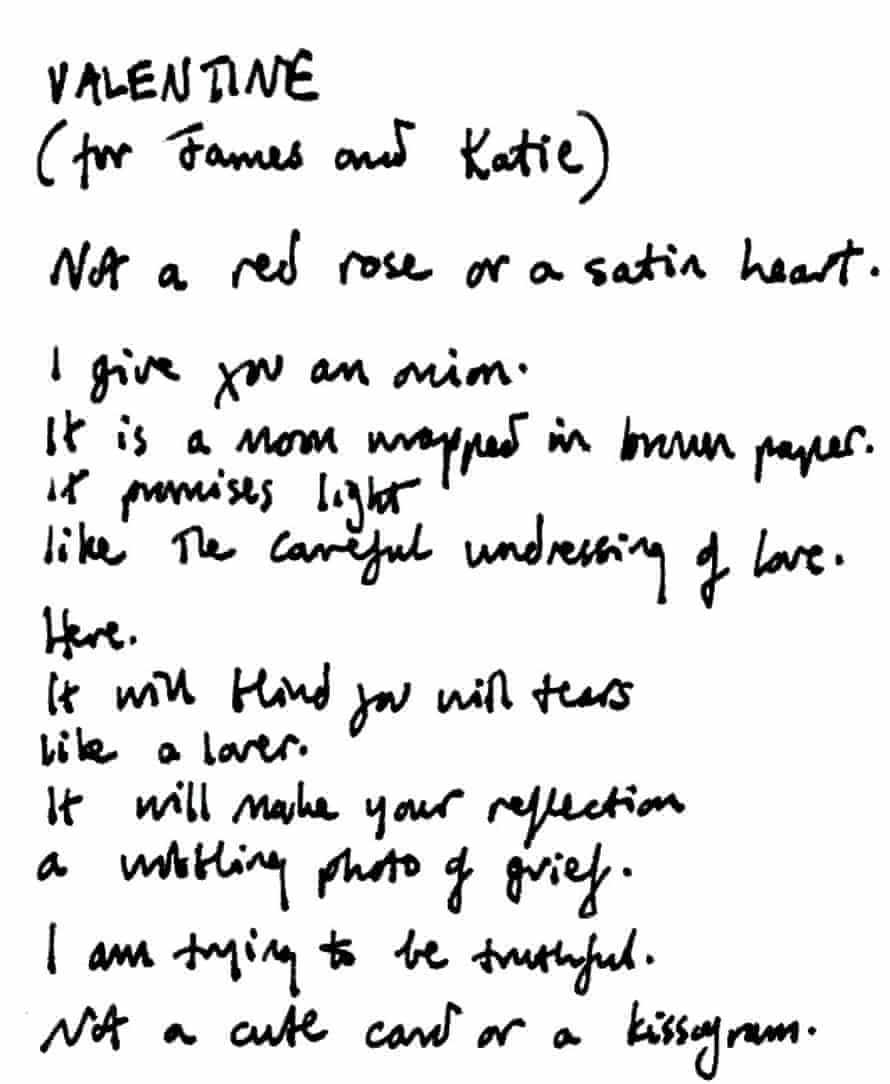 VALENTINE
(for James and Katie)
Not a red rose or a satin heart.
I give you an onion.
It is a moon wrapped in brown paper.
it promises light
like the careful undressing of love.
Here.
It will blind you with tears
like a lover.
It will make your reflection
a wobbling photo of grief.
I am trying to be truthful.
Not a cute card or a kissogram.